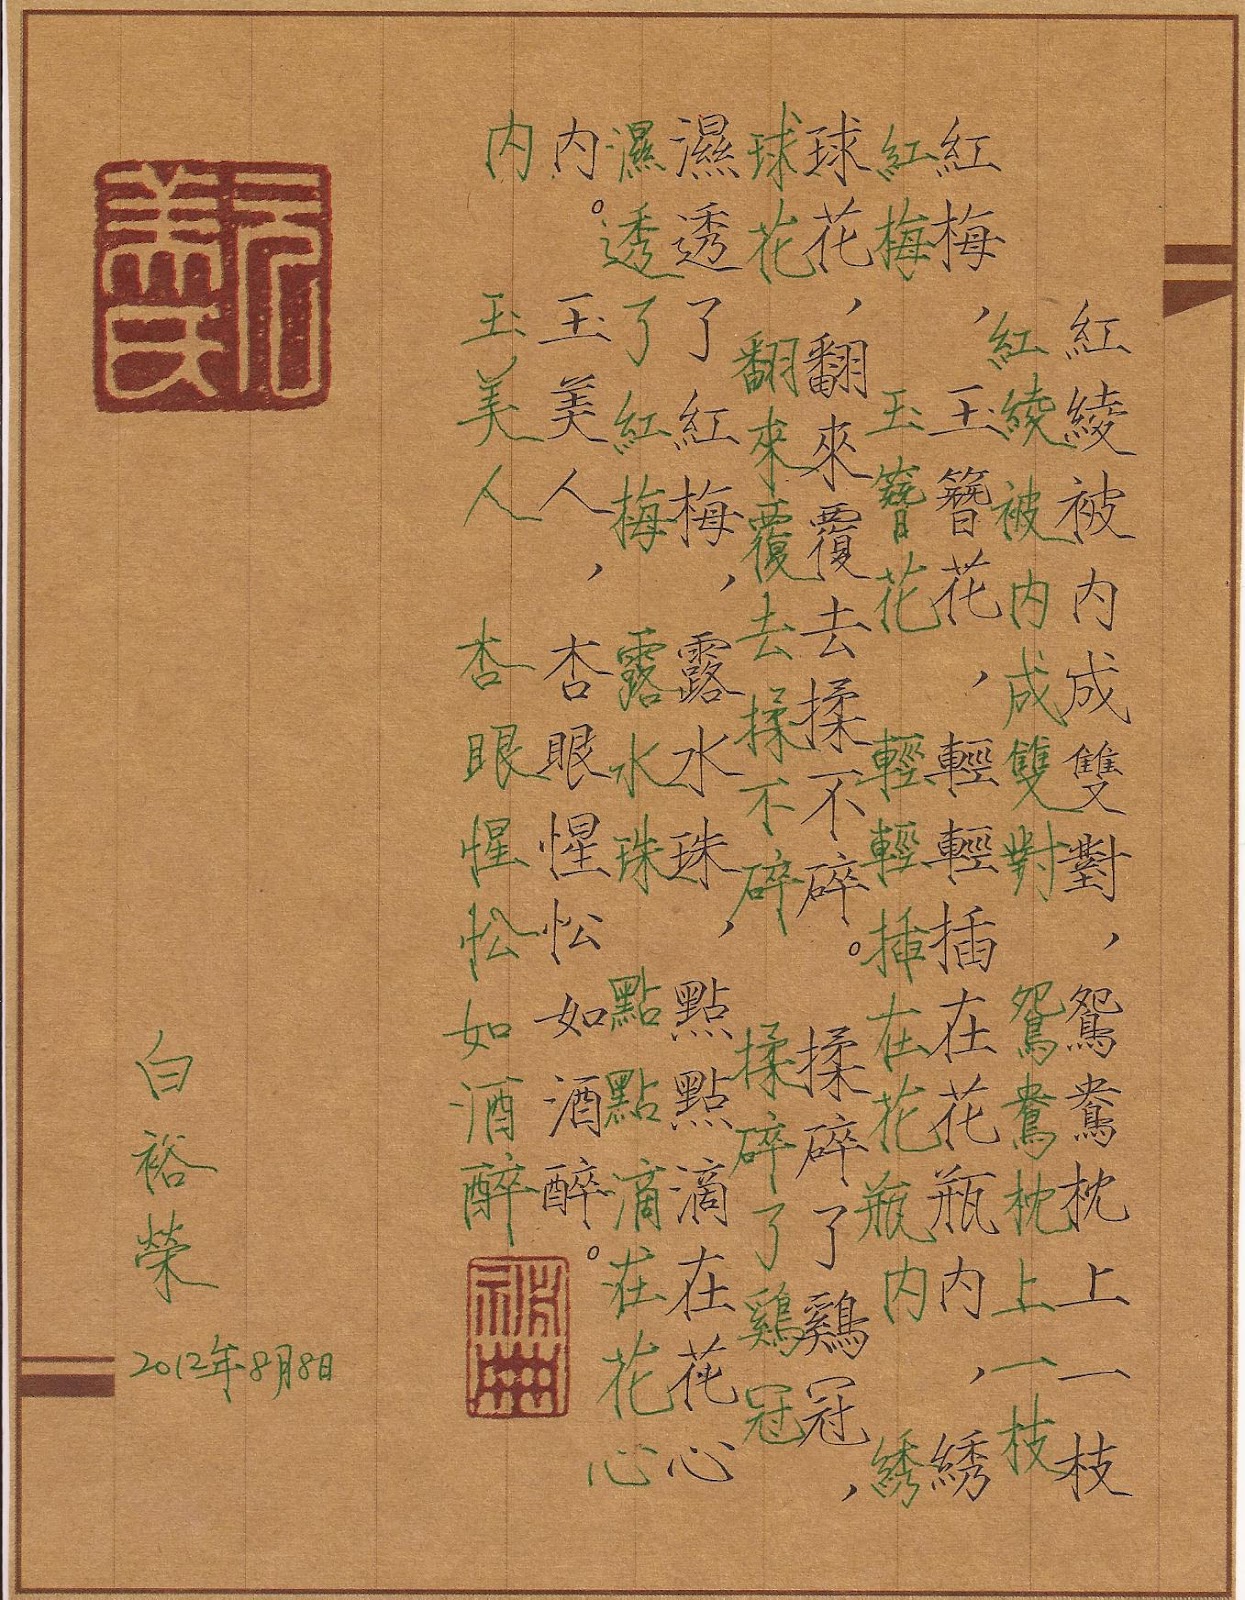 紅綾被内成雙對，鴛鴦枕上一枝
紅綾被内成雙對鴛鴦枕上一枝
紅梅，玉簪花，輕輕插在花瓶内，綉
紅梅玉簪花輕輕插在花瓶内綉
球花，翻來覆去揉不碎。揉碎了鷄冠，
球花翻來覆去揉不碎揉碎了鷄冠
濕透了紅梅，露水珠，點點滴在花心
濕透了紅梅露水珠點點滴在花心
内。玉美人，杏眼惺忪如酒醉。
内玉美人杏眼惺忪如酒醉
白裕榮
2012年8月8日